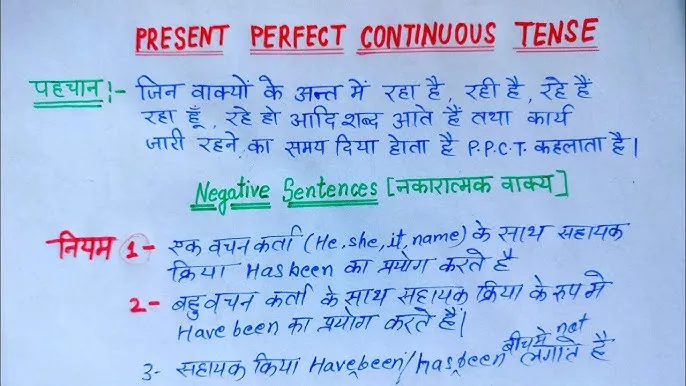 PRESENT PERFECT CONTINUOUS TENSE
पहचान!- जिन वाक्यों के अन्त में रहा है, रही है, रहे हैं
रहा हूँ, रहे हो आदि शब्द आते हैं तथा कार्य
जारी रहने का समय दिया होता है P.P.C.T. कहलाता है।
Negative Sentences [नकारात्मक वाक्य]
नियम 1- एक वचन कर्ता (He, she, it, name) के साथ सहायक
क्रिया Has been का प्रयोग करते है
2- बहुवचन कर्ता के साथ सहायक क्रिया के रूप मे
Have been का प्रयोग करते हैं।
3- सहायक क्रिया Have been/has been बीच मे not लगाते है